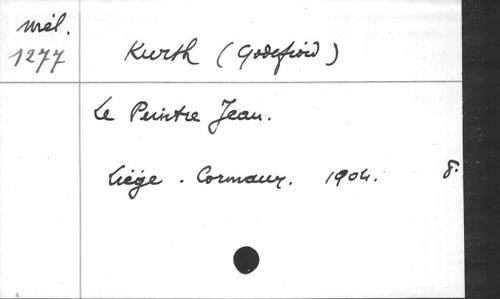 Mél.
1277
Kurth (Godefroid)
Le Peintre Jean.
Liége. Cormaux. 1904. 8.